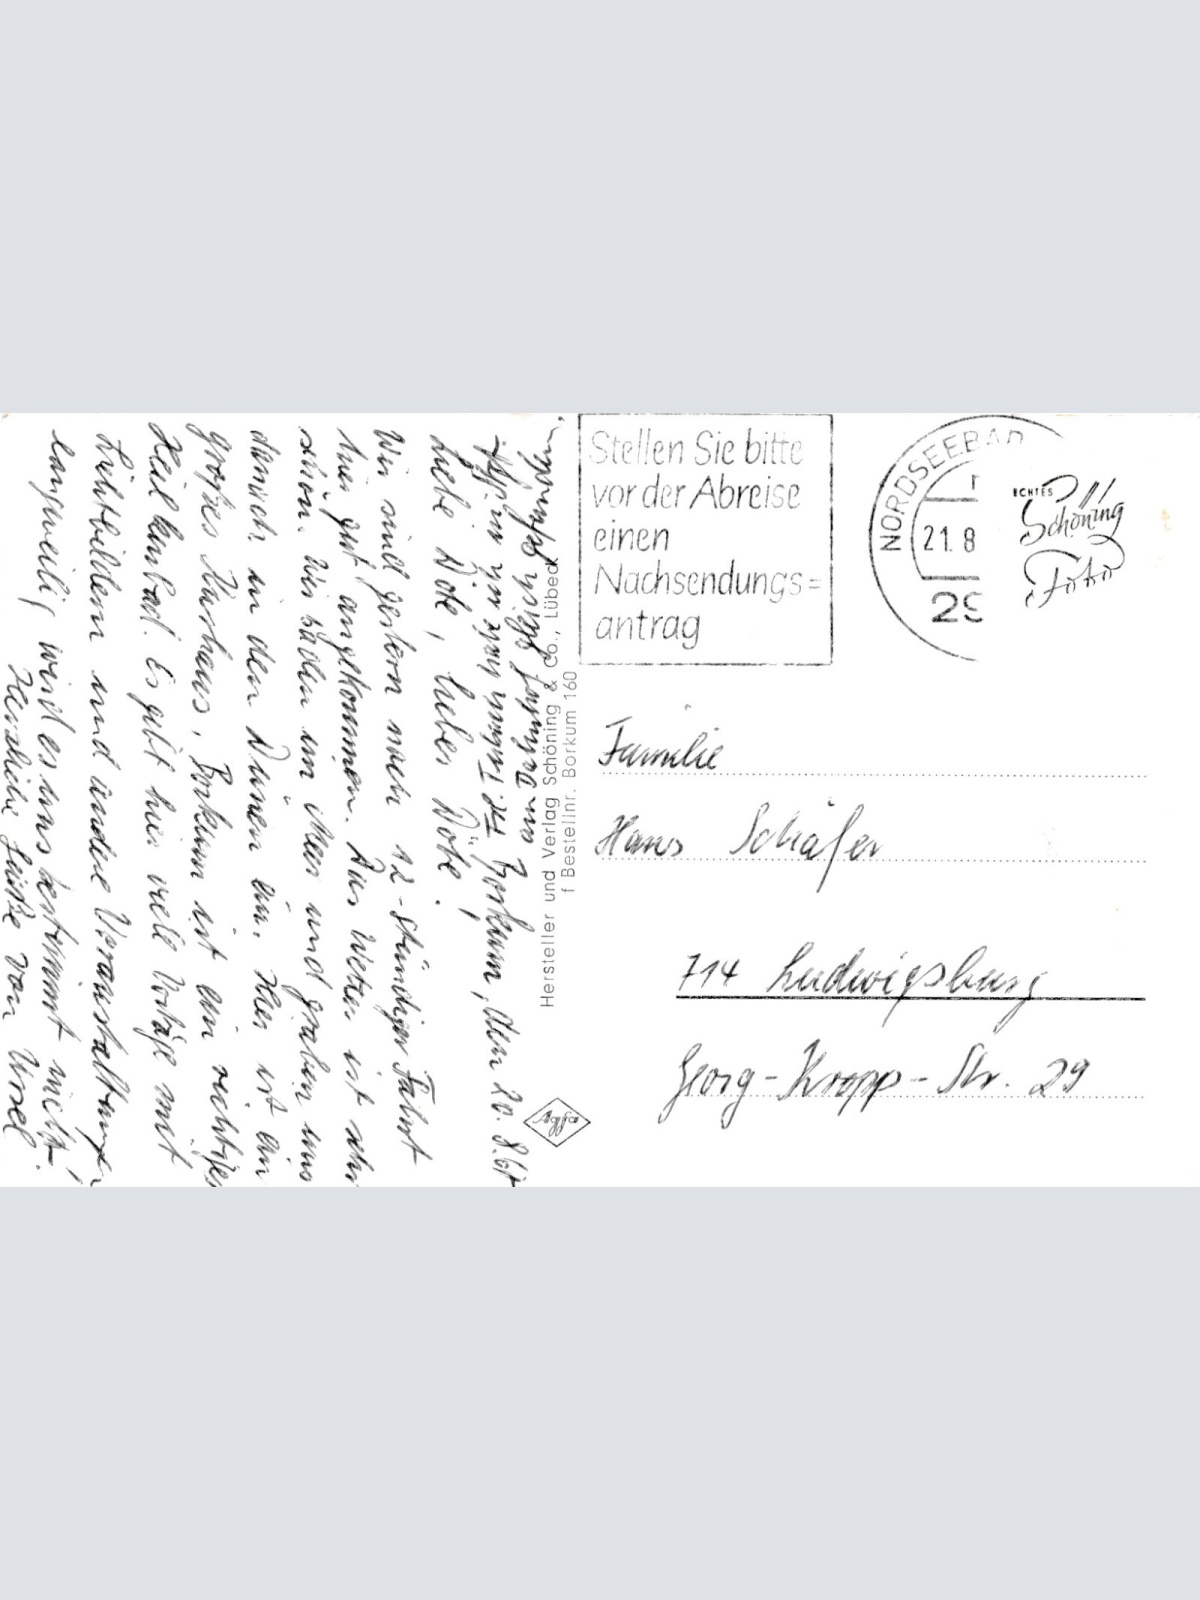 Borkum, den 20. 8. 67
Liebe Dote, lieber Döte!
Wir sind gestern nach 12-stündiger Fahrt
hier gut angekommen. Das Wetter ist sehr
schön. Wir baden im Meer und graben uns
danach in den Dünen ein. Hier ist ein
großes Kurhaus, Borkum ist ein richtiges
Heilklimbad. Es gibt hier viele Vorträge mit
Lichtbildern und andere Veranstaltungen,
langweilig wird es uns bestimmt nicht.
Herzliche Grüße von Ursel
am Bahnhof
Hersteller und Verlag Schöning & Co., Lübeck
f Bestellnr. Borkum 160
Agfa
Stellen Sie bitte
vor der Abreise
einen
Nachsendungs=
antrag
NORDSEEBAD
21.8
29
ECHTES
Schöning
Foto
Familie
Hans Schäfer
714 Ludwigsburg
Georg-Kropp-Str. 29